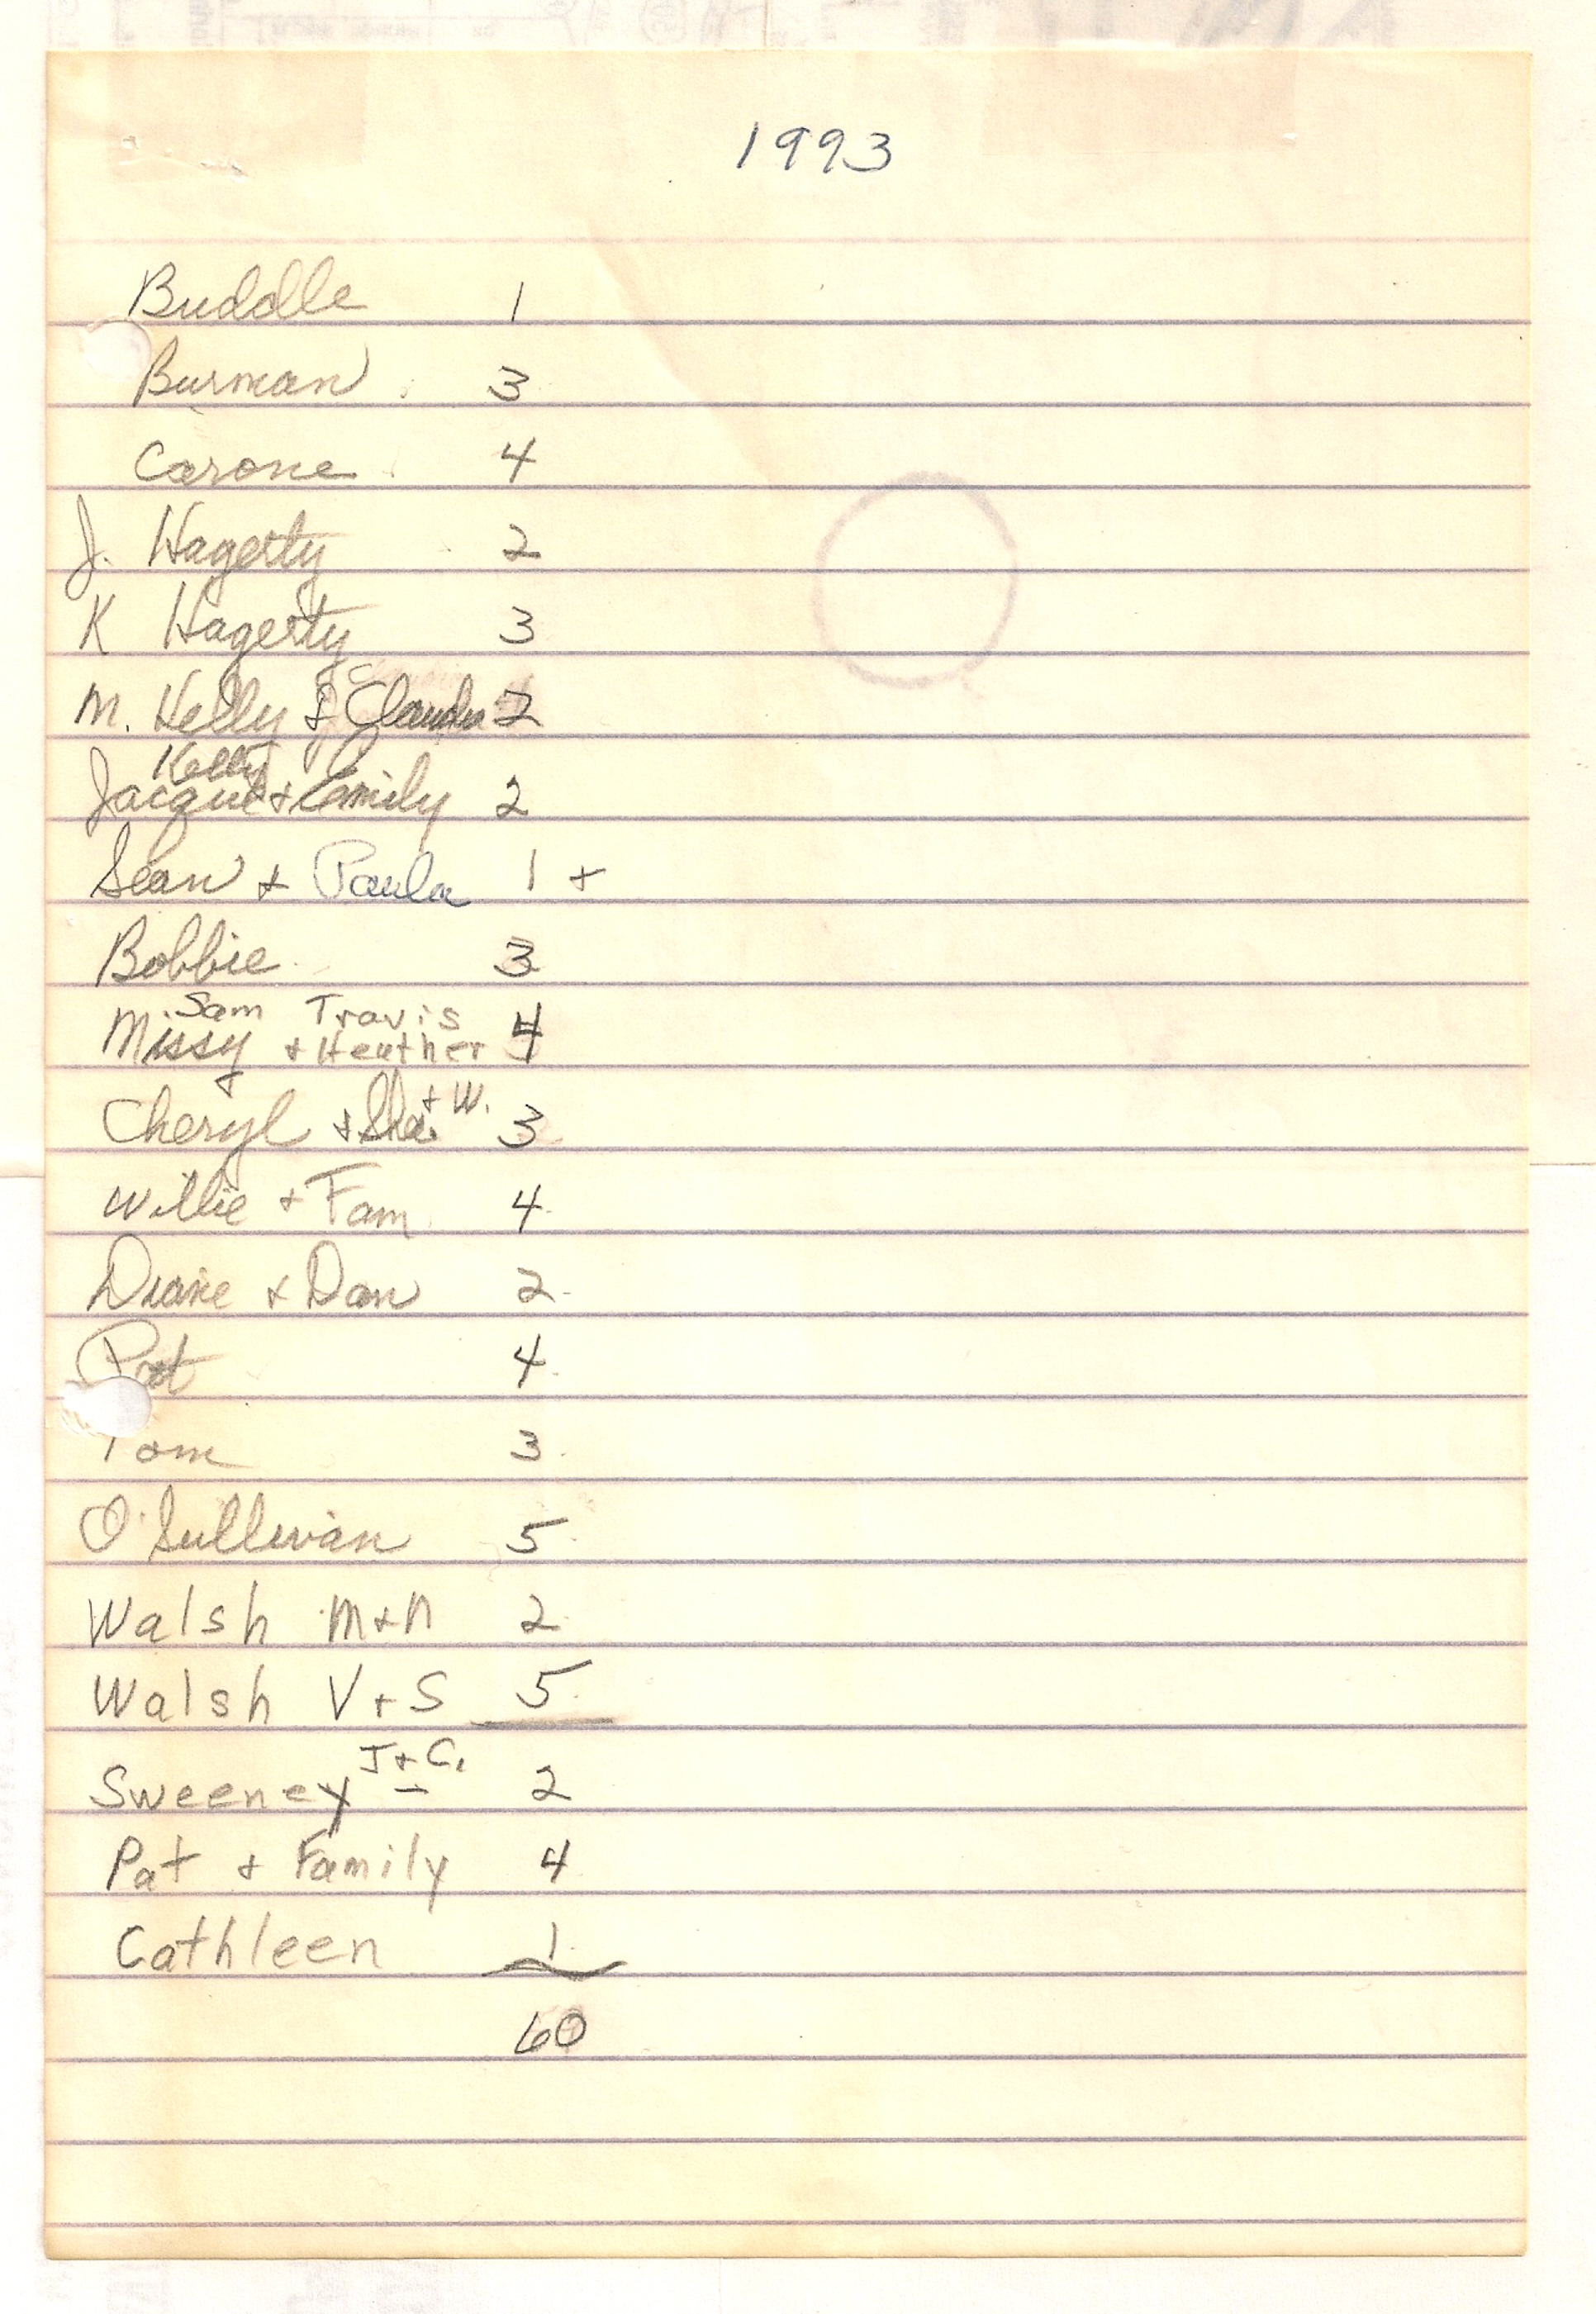 1993
Buddle 1
Burman 3
Carone 4
J. Hagerty 2
K Hagerty 3
M. Kelly & Claudia 2
Kelly
Jacquie + Emily 2
Sean + Paula 1 +
Bobbie 3
Sam Travis
Missy + Heather 4
Cheryl + + W. 3
Willie + Fam 4
Diane + Dan 2
Pat 4
Tom 3
O'Sullivan 5
Walsh M+N 2
Walsh V+S 5
J+C.
Sweeney 2
Pat + Family 4
Cathleen 1
60